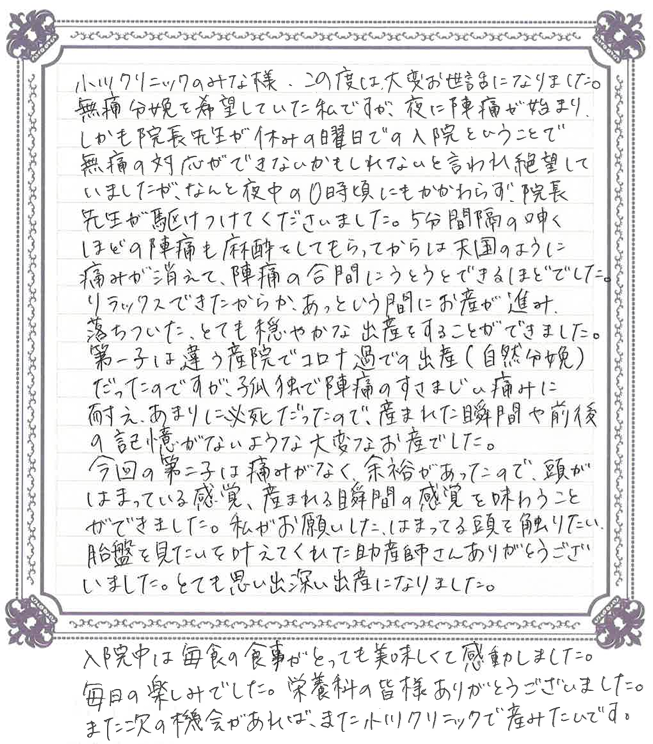 小川クリニックのみな様、この度は大変お世話になりました。
無痛分娩を希望していた私ですが、夜に陣痛が始まり、
しかも院長先生が休みの曜日での入院ということで
無痛の対応ができないかもしれないと言われ絶望して
いましたが、なんと夜中の0時頃にもかかわらず、院長
先生が駆けつけてくださいました。5分間隔の呻く
ほどの陣痛も麻酔をしてもらってからは天国のように
痛みが消えて、陣痛の合間にうとうとできるほどでした。
リラックスできたからか、あっという間にお産が進み、
落ちついた、とても穏やかな出産をすることができました。
第一子は違う産院でコロナ過での出産(自然分娩)
だったのですが、孤独で陣痛のすさまじい痛みに
耐え、あまりに必死だったので、産まれた瞬間や前後
の記憶がないような大変なお産でした。
今回の第二子は痛みがなく、余裕があったので、頭が
はまっている感覚、産まれる瞬間の感覚を味わうこと
ができました。私がお願いした、はまってる頭を触りたい、
胎盤を見たいを叶えてくれた助産師さんありがとうござ
いました。とても思い出深い出産になりました。
入院中は毎食の食事がとっても美味しくて感動しました。
毎日の楽しみでした。栄養科の皆様ありがとうございました。
また次の機会があれば、また小川クリニックで産みたいです。